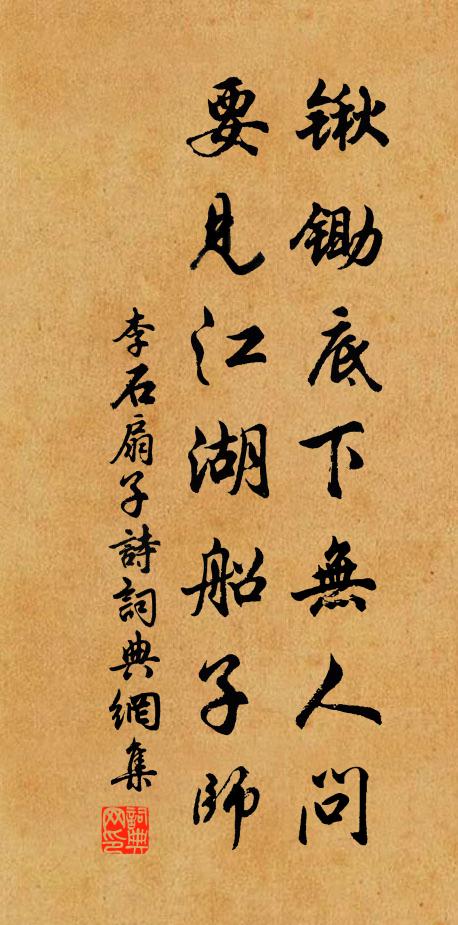 鍬鋤底下無人問
要見江湖船子師
李石扇子詩詞典網集
詞典網印